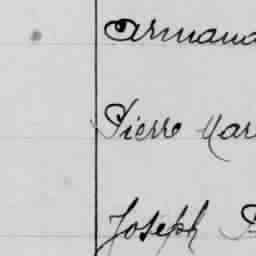 Armand
Pierre Mar
Joseph